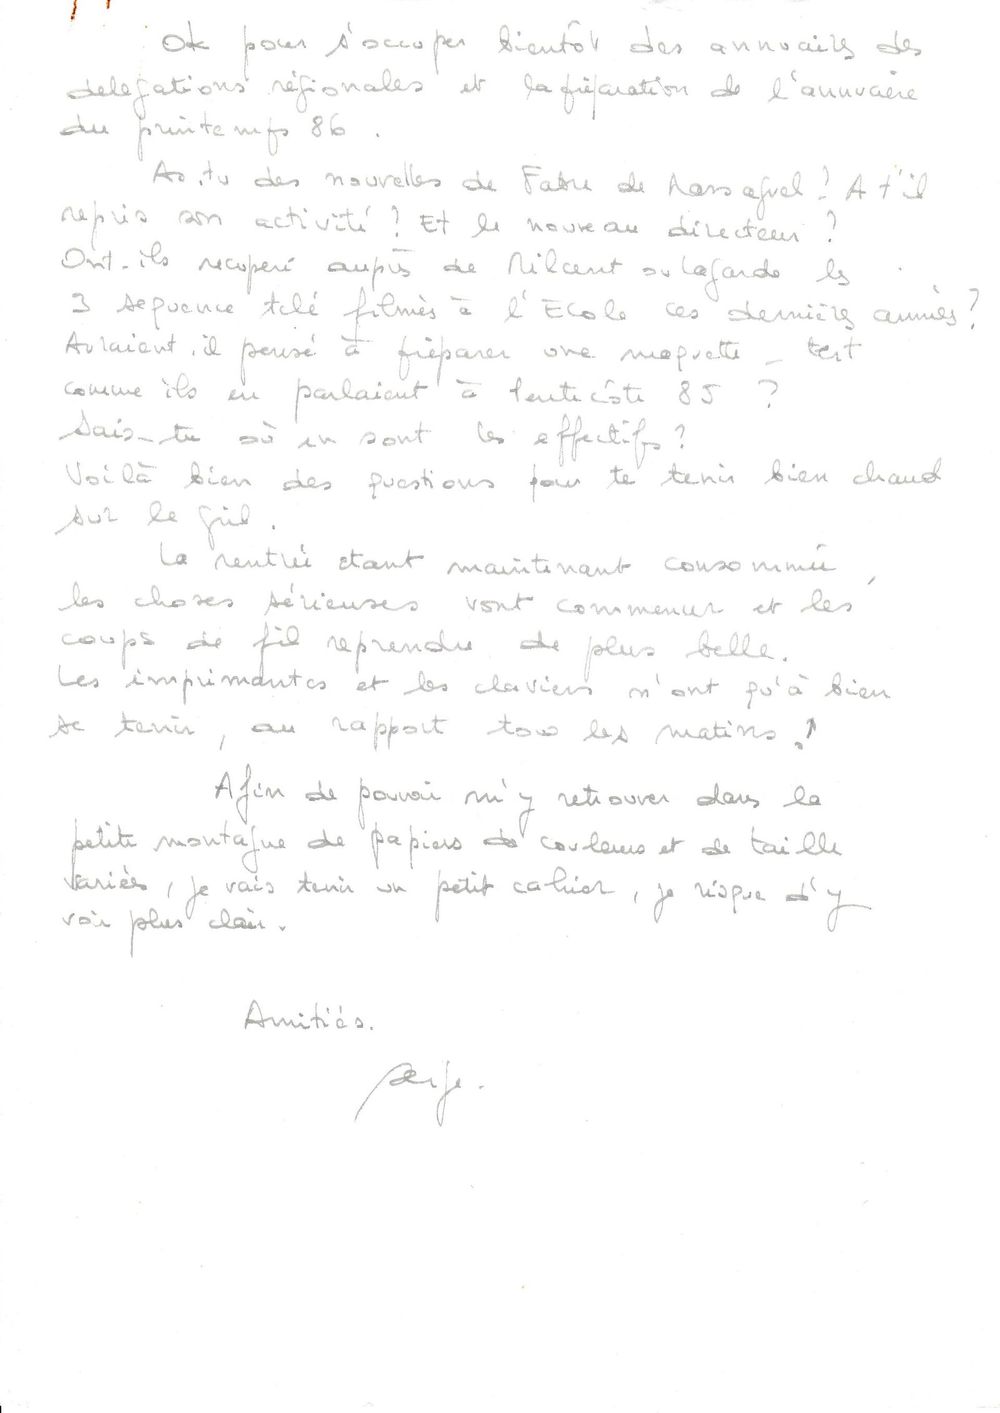 Ok pour s'occuper bientôt des annuaires des
delegations régionales et la préparation de l'annuaire
du printemps 86.
As.tu des nouvelles de Fabre de ? A t'il
repris son activité ? Et le nouveau directeur ?
Ont-ils recuperé auprès de Milcent ou Lagarde les
3 sequence télé filmés à l'Ecole ces dernières années ?
Auraient.il pensé à préparer une maquette - test
comme ils en parlaient à Pentecôte 85 ?
Sais-tu où en sont les effectifs ?
Voilà bien des questions pour te tenir bien chaud
sur le gril.
La rentrée etant maintenant consommée,
les choses sérieuses vont commencer et les
coups de fil reprendre de plus belle.
Les imprimantes et les claviers n'ont qu'à bien
se tenir, au rapport tous les matins !
Afin de pouvoir m'y retrouver dans la
petite montagne de papiers de couleurs et de taille
variées, je vais tenir un petit cahier, je risque d'y
voir plus clair.
Amitiés.
Serge.